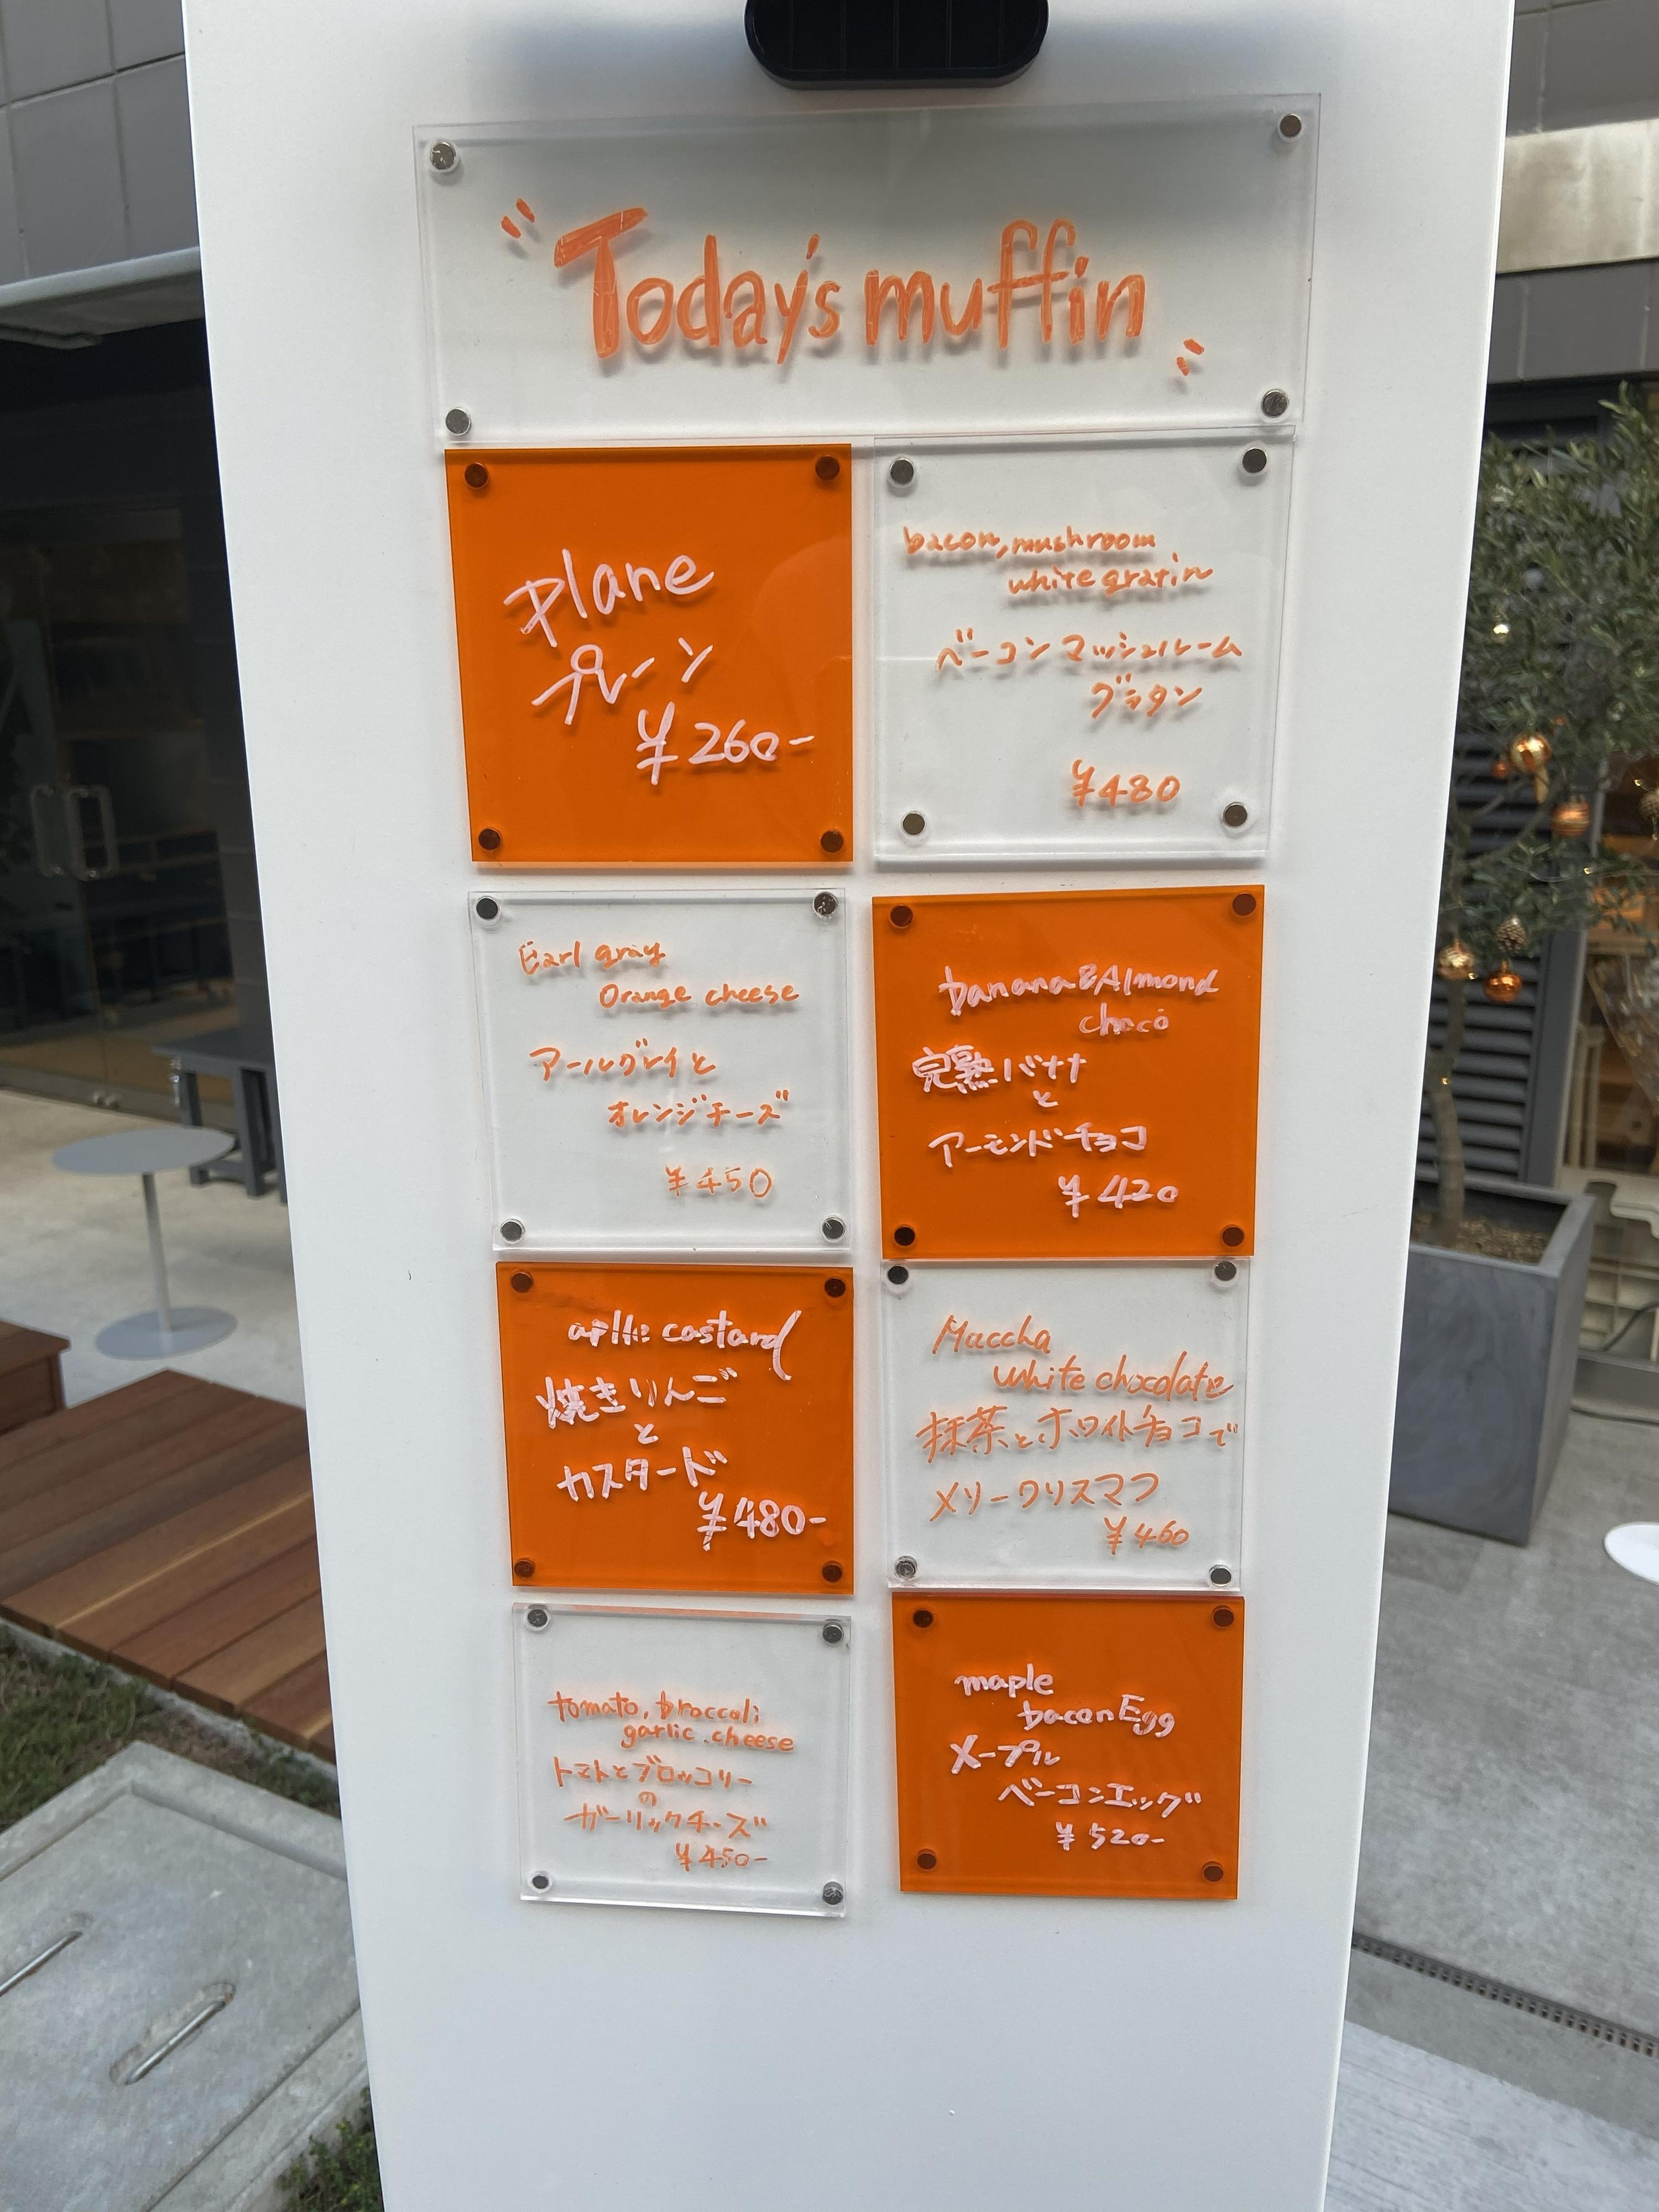 Today's muffin
plane
プレーン
¥260-
bacon, mushroom
white gratin
ベーコン マッシュルーム
グラタン
¥480
Earl gray
Orange cheese
アールグレイと
オレンジチーズ
¥450
banana&Almond
choco
完熟バナナ
と
アーモンドチョコ
¥420
aplle costard
焼きりんご
と
カスタード
¥480-
Maccha
white chocolate
抹茶とホワイトチョコで
メリークリスマフ
¥460
tomato, broccoli
garlic.cheese
トマトとブロッコリー
の
ガーリックチーズ
¥450-
maple
bacon Egg
メープル
ベーコンエッグ
¥520-